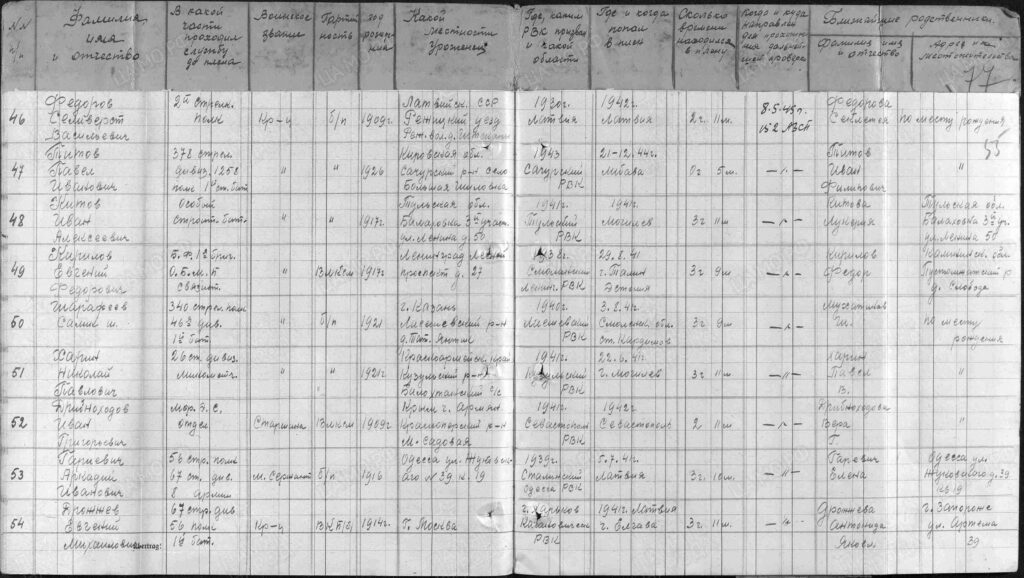 NN п/п Фамилия имя и отчество В какой части проходил службу до плена Воинское звание Партийность год рождения Какой местности уроженец Где, каким РВК призван и какой области Где и когда попал в плен Сколько времени находился в плену Когда и куда направлен для прохождения дальнейшей проверки Ближайшие родственники
Фамилия имя и отчество адрес и местожительство
77
Федоров 2й стрелк. Латвийск. ССР 1930г. 1942г. 8-5-45г. Федорова
46 Селиверст полк Кр-ц б/п 1909г. Режицкий уезд Латвия Латвия 2г. 11м. 152 АЗСП по месту рождения
Васильевич Реж. вол. д.
Титов 378 стрел. Кировская обл. 1943 21-12.44г. Титов 55
47 Павел дивиз. 1258 " " 1926 Санчурский р-н село Санчурский Либава 0г 5м. —"— Иван "
Иванович полк 1й ст. бат. Большая Шишовка РВК Филипович
Китов Особый Тульская обл. 1941г. 1941г. Китова Тульская обл.
48 Иван строит. бат. " " 1917г. Балаховка 3й участ. Тульский Могилев 3г 11м —"— Лукерия Балаховка 3й уч.
Алексеевич ул. Ленина д. 50 РВК ул. Ленина 50
Кирилов Б.Ф. 1й бриг. Ленинград Лесной 1938г. 29.8.41 Кирилов Калининск. обл.
49 Евгений О.Б.М.П " ВЛКСМ 1917г проспект д. 27 Смолнинский г. Талин 3г 9м —"— Федор Пустошкинский р
Федорович связист. Ленинг. РВК Эстония д. Слобода
Шарафеев 340 стрел. полк г. Казань 1940г. 3.8.41г.
50 Салих Ш. 46й див. " б/п 1921 Лаишевский р-н Лаишевский Смоленск. обл. 3г 9м —"— Ш. по месту
1й бат. д. Тат. Янтык РВК ст. Кардимов рождения
Харин 26 ст. дивиз. Красноармейск. край 1941г. 22.6.41г. Харин
51 Николай миномётч. " " 1921г. р-н г. Могилев 3г 11м —"— Павел "
Павлович с/с РВК В.
Кривоходов мор. З. С. Крым г. Армян 1941г. 1942г Кривоходова
52 Иван отдел Старшина ВЛКСМ 1909г. Красноперский р-н Севастопол Севастополь 2 11м —"— Вера "
Григорьевич м. Садовая РВК Г.
Гариевич 56 стр. полк Одесса ул. Жуковск- 1939г. 5.7.41г. Гаревич Одесса ул.
53 Аркадий 67 ст. див. м. Сержант б/п 1916 ого № 39 кв. 19 Сталинский Латвия 3г 10м —"— Елена Жуковского д. 39
Иванович 8 армии Одесса РВК кв 19
Дрожнев 67 стр. див г. Харьков 1941г. Латвия Дрожнева г. Запорож
54 Евгений 56 полк Кр-ц ВКП(б) 1914г. г. Москва Кагановическ г. Вегава 3г. 11м. —"— Антонида ул. Артема
Михайлович 1й бат. РВК Яковл. 39